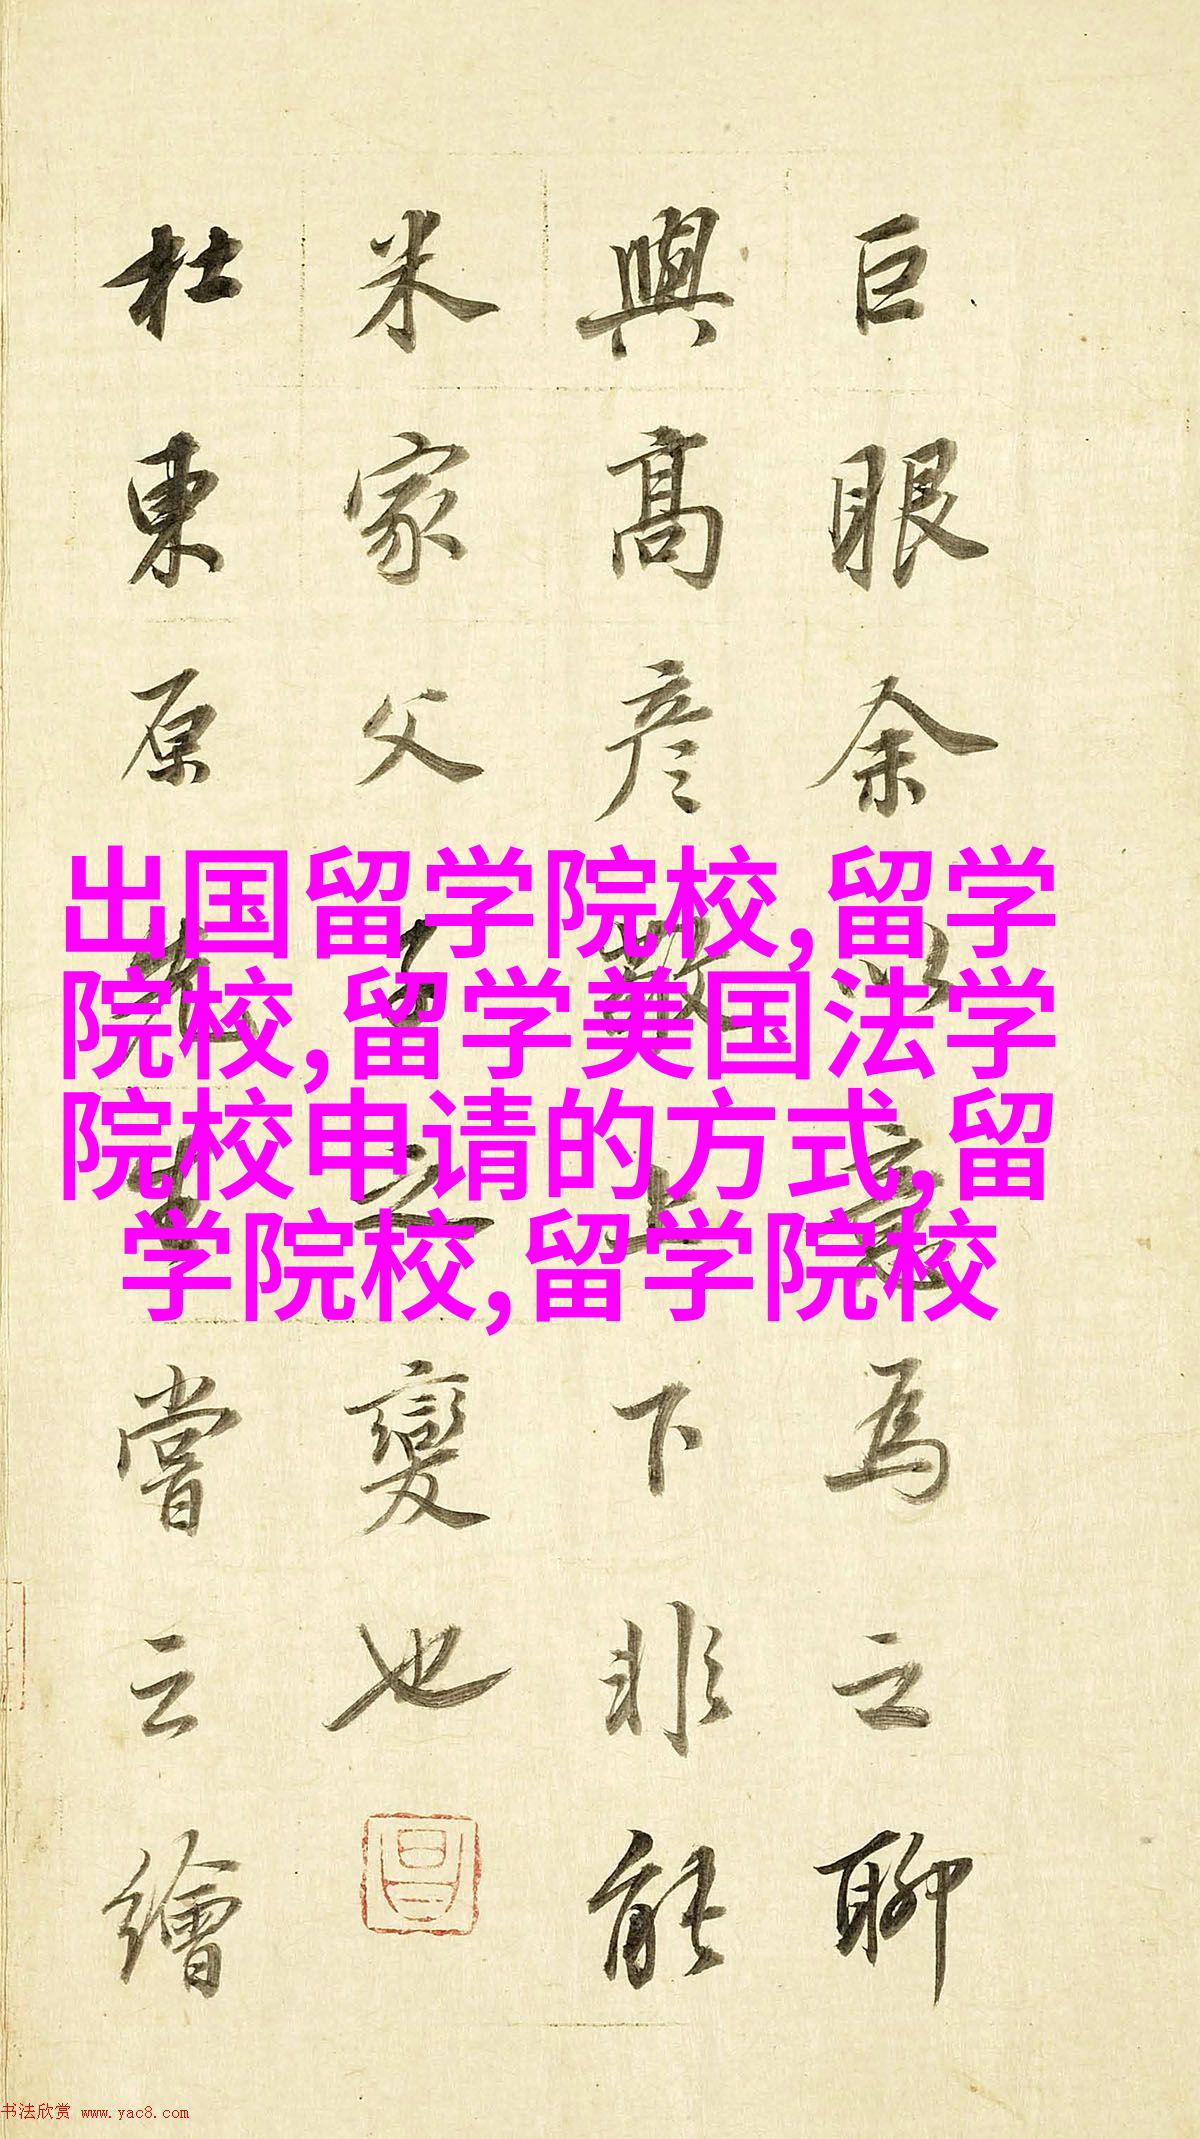 巨眼余以意為之聊
與高彦敬上下非能
米家父子之變也
杜東原先生嘗云繪
出国留学院校,留学
院校,留学美国法学
院校申请的方式,留
学院校,留学院校
书法欣赏 www.yac8.com